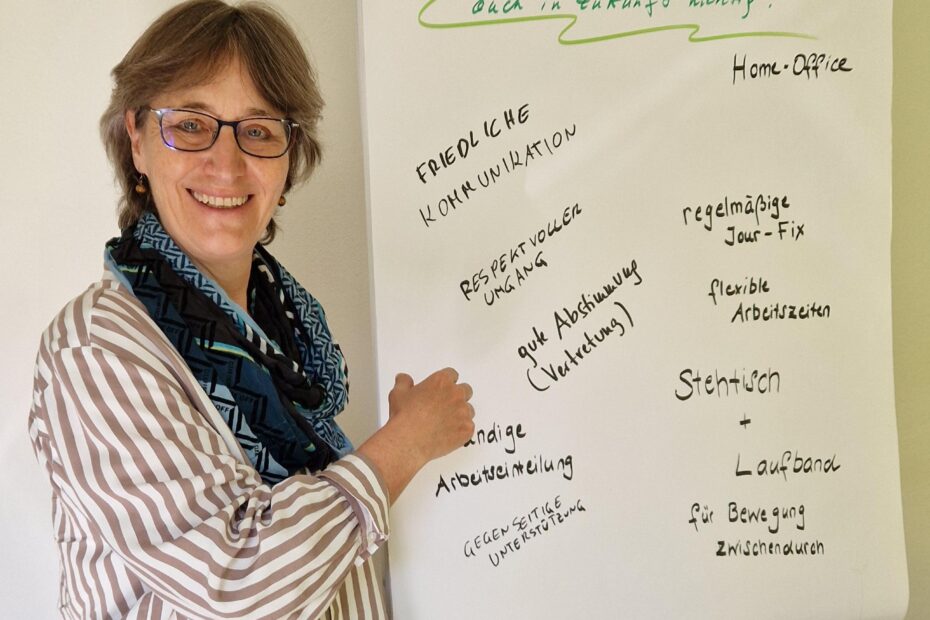 auch in Zukunft wichtig!
Home-Office
FRIEDLICHE
KOMMUNIKATION
regelmäßige
Jour-Fix
RESPEKTVOLLER
UMGANG
flexible
Arbeitszeiten
gute Abstimmung
(Vertretung)
Stehtisch
+
Laufband
für Bewegung
zwischendurch
ändige
Arbeitseinteilung
GEGENSEITIGE
UNTERSTÜTZUNG